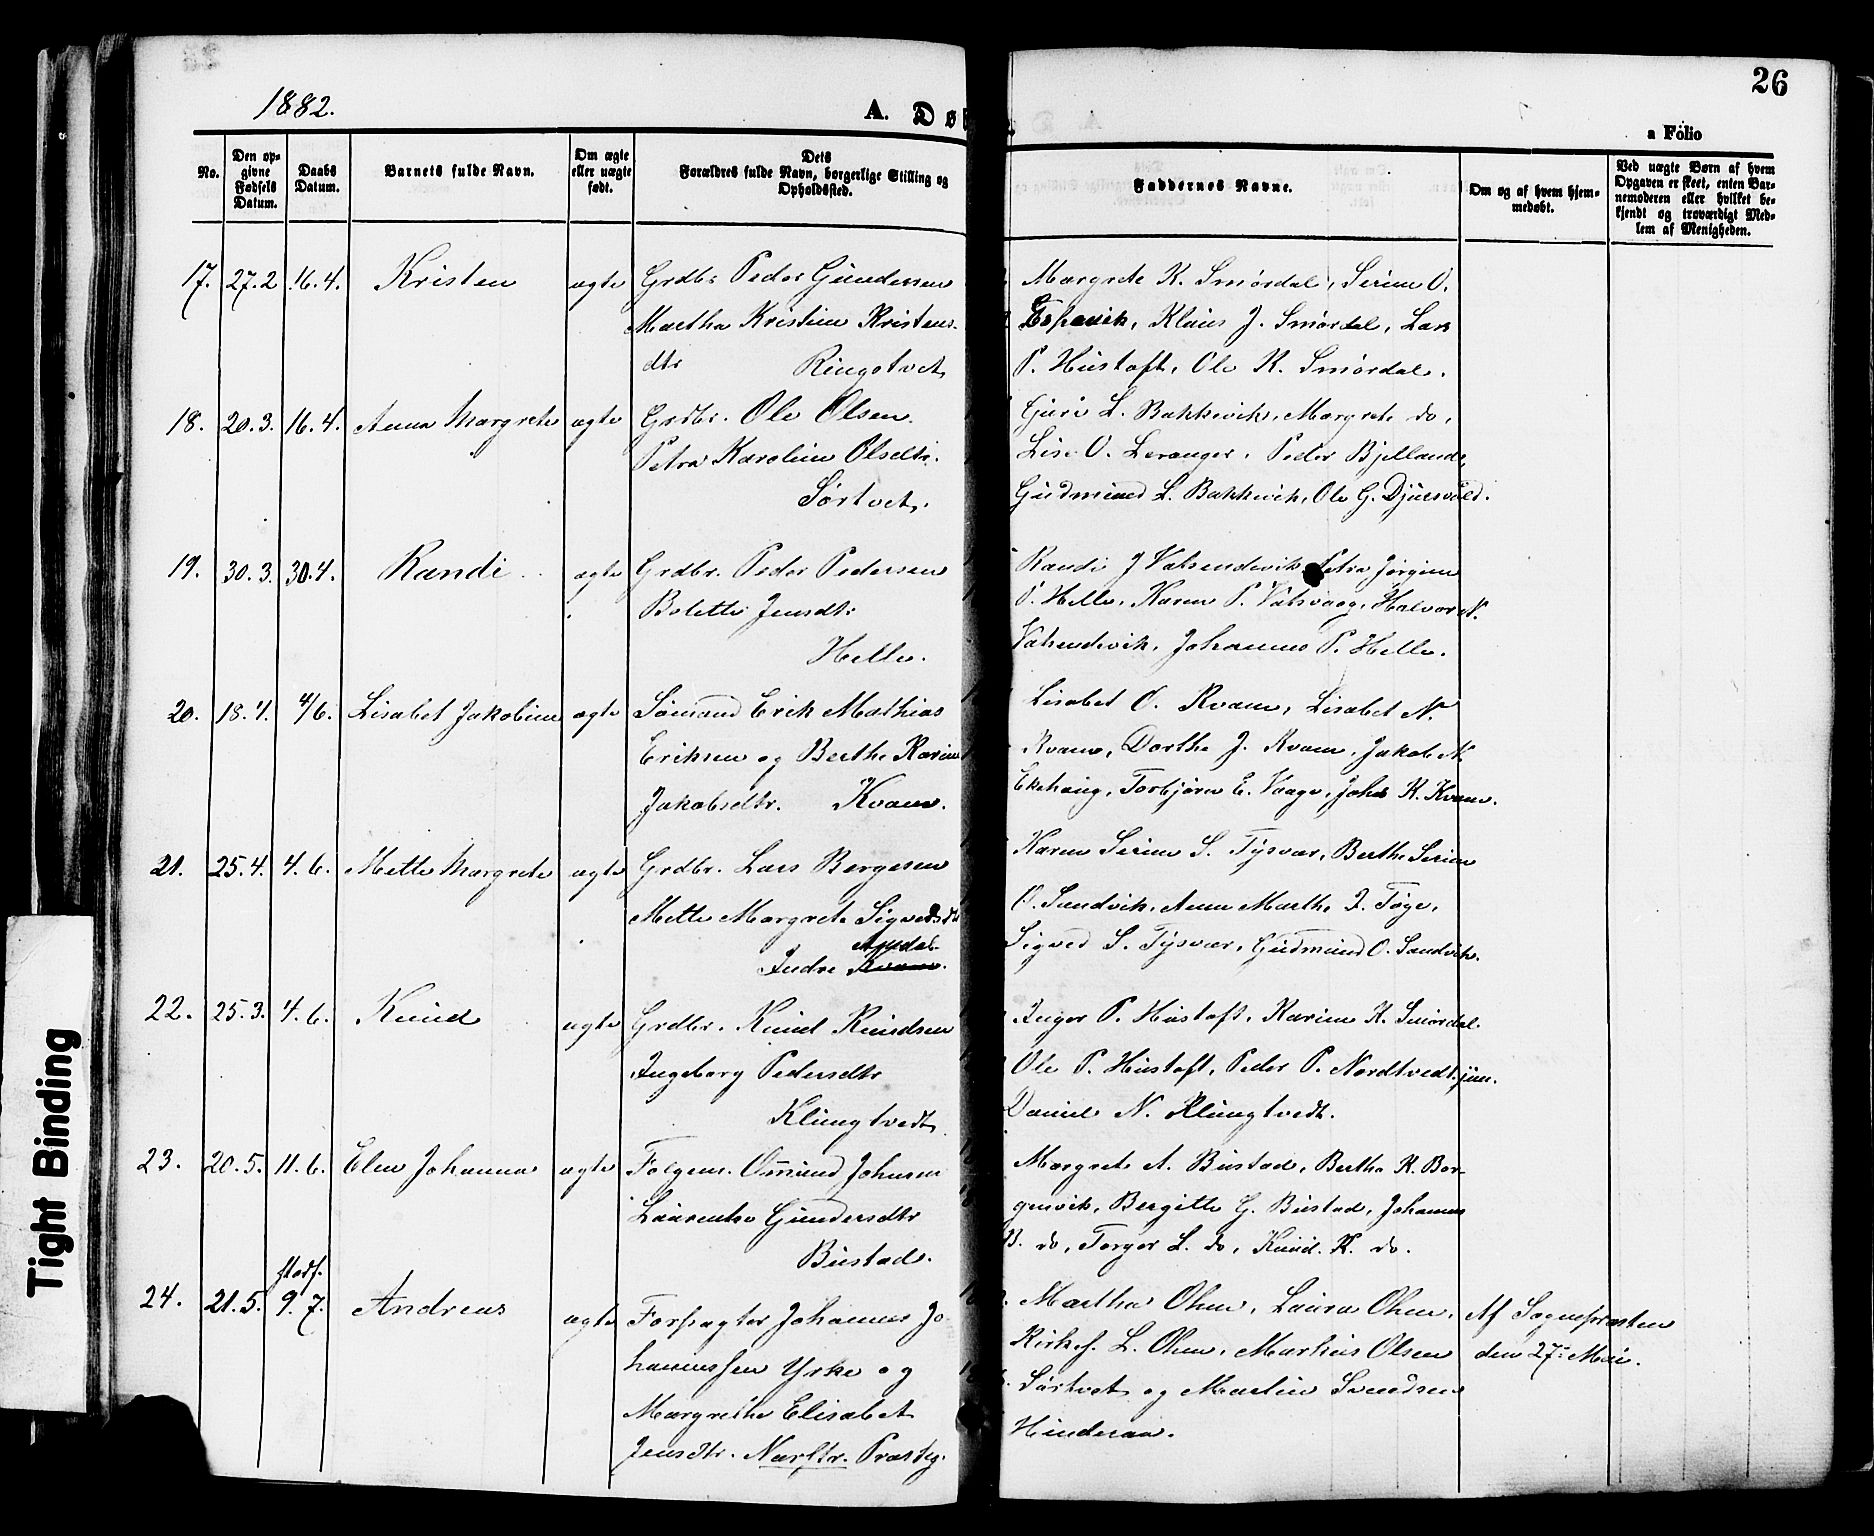 26
1882.
A. Døb
a Folio
No.
Den op-
givne
Fødsels
Datum.
Daabs
Datum.
Barnets fulde Navn.
Om ægte
eller uægte
født.
Dets
Forældres fulde Navn, borgerlige Stilling og
Opholdssted.
Faddernes Navne.
Om og af hvem hjem-
medøbt.
Ved uægte Børn af hvem
Opgaven er skeet, enten Bar-
nemoderen eller hvilket be-
kjendt og troværdigt Med-
lem af Menigheden.
17. 27.2 16.4. Kristen ægte Grdbr Peder Gundersen
Martha Kristine Kristens-
dtr Ringstvet
Margrete K. Smørdal, Serine O.
Espevik, Klaus J. Smørdal, Lars
P. Hustoft, Ole K. Smørdal.
18. 20.3. 16.4. Anna Margrete ægte Grdbr. Ole Olsen
Petra Karoline Olsdtr.
Sørtvet.
Guri L. Bakkevik, Margrete do,
Lise O. Leranger, Peder Bjelland,
Gudmund L. Bakkevik, Ole G. Djursvold.
19. 30.3. 30.4. Randi ægte Grdbr. Peder Pedersen
Bolette Jensdtr
Helle.
Randi J Vatsendvik Petra Jørgine
P. Helle, Karen P. Vatsvaag, Halvor N.
Vatsendvik, Johannes P. Helle.
20. 18.4. 4/6. Lisabet Jakobine ægte Sømand Erik Mathias
Eriksen og Berthe Karine
Jakobsdtr. Kvam.
Lisabet O. Kvam, Lisabet N.
Kvam, Dorthe J. Kvam, Jakob N.
Ekehaug, Torbjørn E. Vaage, Johs K. Kvam.
21. 25.4. 4.6. Mette Margrete ægte Grdbr. Lars Bergesen
Mette Margrete Sigvedsdtr
Amdal
Indre Kvam.
Karen Serine S. Tysvær, Berthe Serine
O. Sandvik, Anne Marthe I. Tøge,
Sigved S. Tysvær, Gudmund O. Sandvik.
22. 25.3. 4.6. Knud ægte Grdbr. Knud Knudsen
Ingeborg Pedersdtr
Klungtvedt
Inger P. Hustoft, Karine K. Smørdal.
Ole P. Hustoft, Peder P. Nordtvedt jun.
Daniel N. Klungtvedt.
23. 20.5. 11.6. Elen Johanna ægte Følgem. Omund Johnsen
Laurentse Gundersdtr
Bustad.
Margrete A. Bustad, Bertha K. Bor-
genvik, Bergitte G. Bustad, Johannes
B. do, Torger L. do, Knud. K. do.
stadf.
24. 21.5. 9.7. Andreas ægte Forpagter Johannes Jo-
hannessen Yrke og
Margrethe Elisabet
Jensdtr. Nærstr. Præstg.
Martha Olsen, Laura Olsen,
Kirkes. L. Olsen, Markus Olsen
Sørtvet og Martin Svendsen
Hinderaa.
Af Sognepræsten
den 27. Mai.
Tight Binding